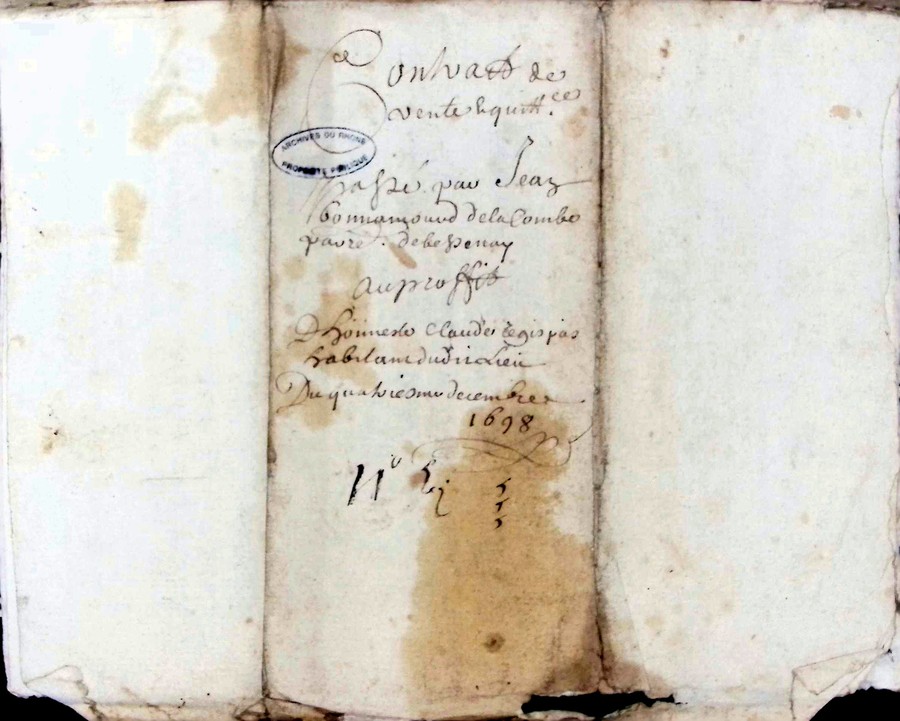 Contract de
vente & quitt.ce
ARCHIVES DU RHONE
PROPRIÉTÉ PUBLIQUE
Passé par Jean
bonnamourd delaCombe
debessenay
auproffit
D'honneste Claude
habitant dudit Lieu
Du quatriesme decembre
1698
N°